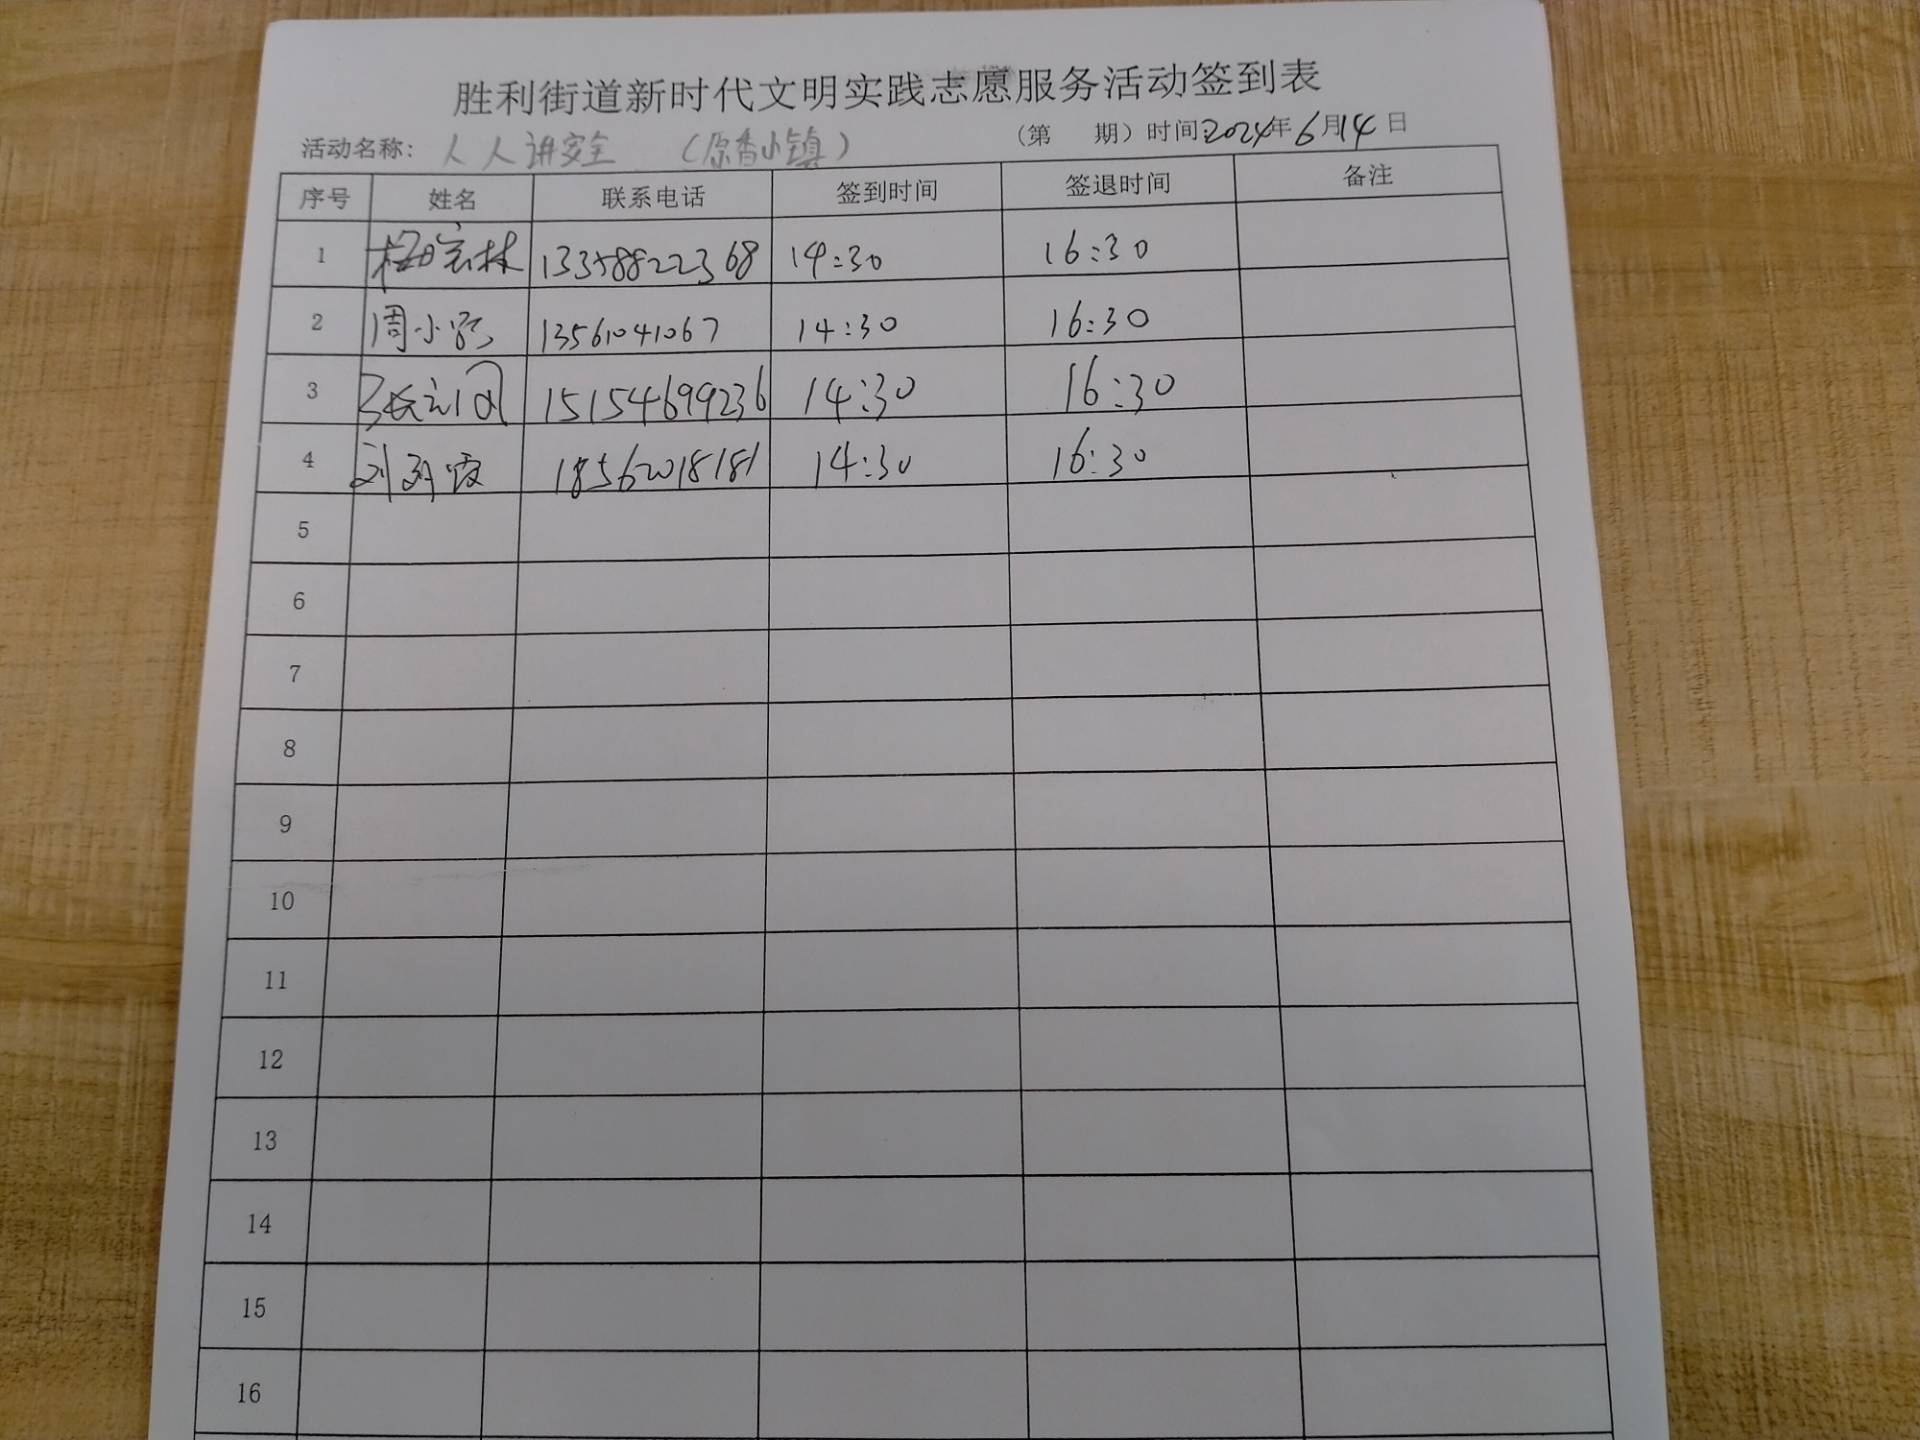 胜利街道新时代文明实践志愿服务活动签到表
活动名称: 人人讲安全 (原香小镇) (第 期) 时间 2024年6月14日
序号 姓名 联系电话 签到时间 签退时间 备注
1 13358822368 14:30 16:30
2 周小 13561041067 14:30 16:30
3 张 15154699236 14:30 16:30
4 刘 霞 18562018181 14:30 16:30
5
6
7
8
9
10
11
12
13
14
15
16